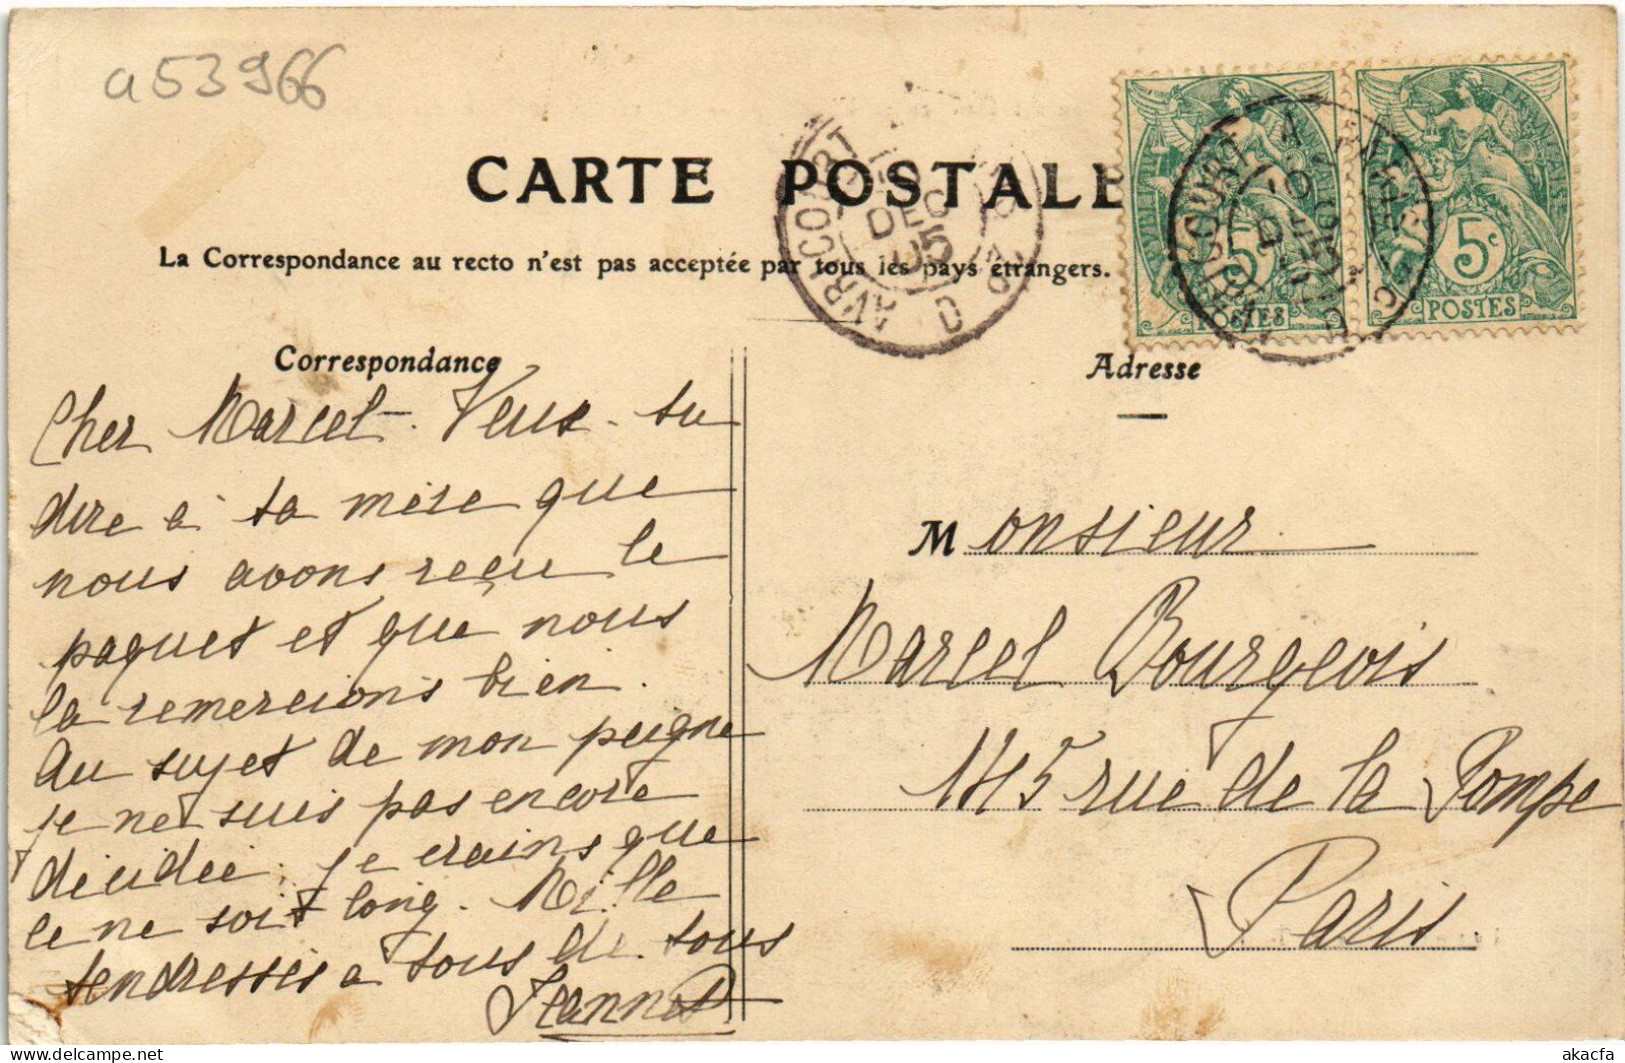 a53966
CARTE POSTALE
La Correspondance au recto n'est pas acceptée par tous les pays étrangers.
AVRICOURT
DEC
05
5c
POSTES
5c
POSTES
Correspondance
Cher Marcel. Veux-tu
dire à ta mère que
nous avons reçu le
paquet et que nous
la remercions bien.
Au sujet de mon peigne
je ne suis pas encore
décidée; je crains que
ce ne soit long. Mille
tendresses à tous de tous
Jeanne
Adresse
Monsieur
Marcel Bourgeois
145 rue de la Pompe
Paris.
akacfa